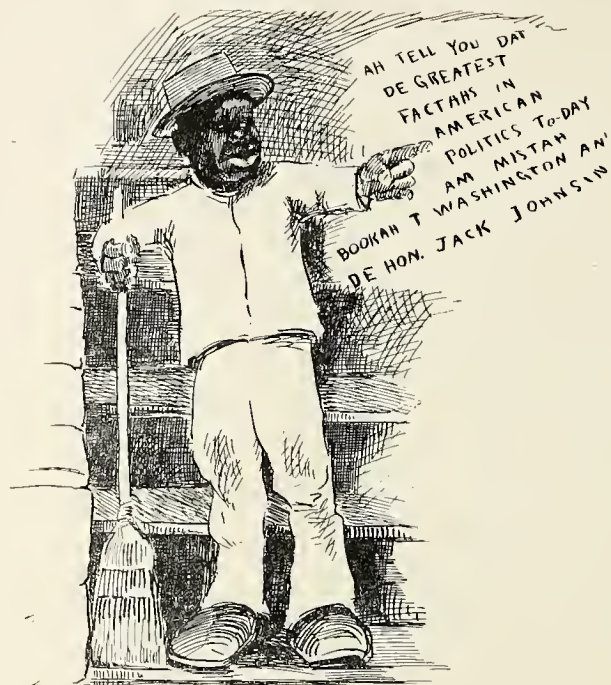 AH TELL YOU DAT
DE GREATEST
FACTAHS IN
AMERICAN
POLITICS TO-DAY
AM MISTAH
BOOKAH T WASHINGTON AN'
DE HON. JACK JOHNSIN